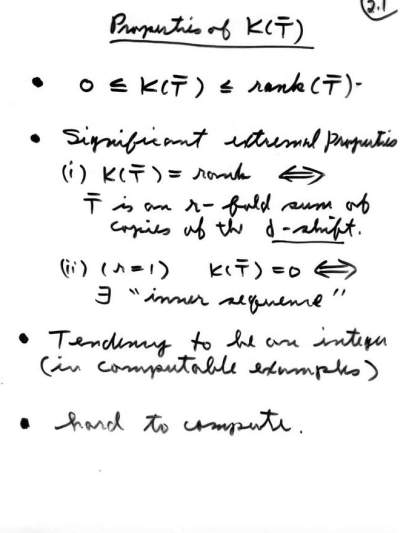 2.1
Properties of K(T̄)
• 0 ≤ K(T̄) ≤ rank(T̄).
• Significant extremal properties
(i) K(T̄) = rank ⟺
T̄ is an r-fold sum of
copies of the d-shift.
(ii) (r=1) K(T̄)=0 ⟺
∃ "inner sequence"
• Tendency to be an integer
(in computable examples)
• hard to compute.